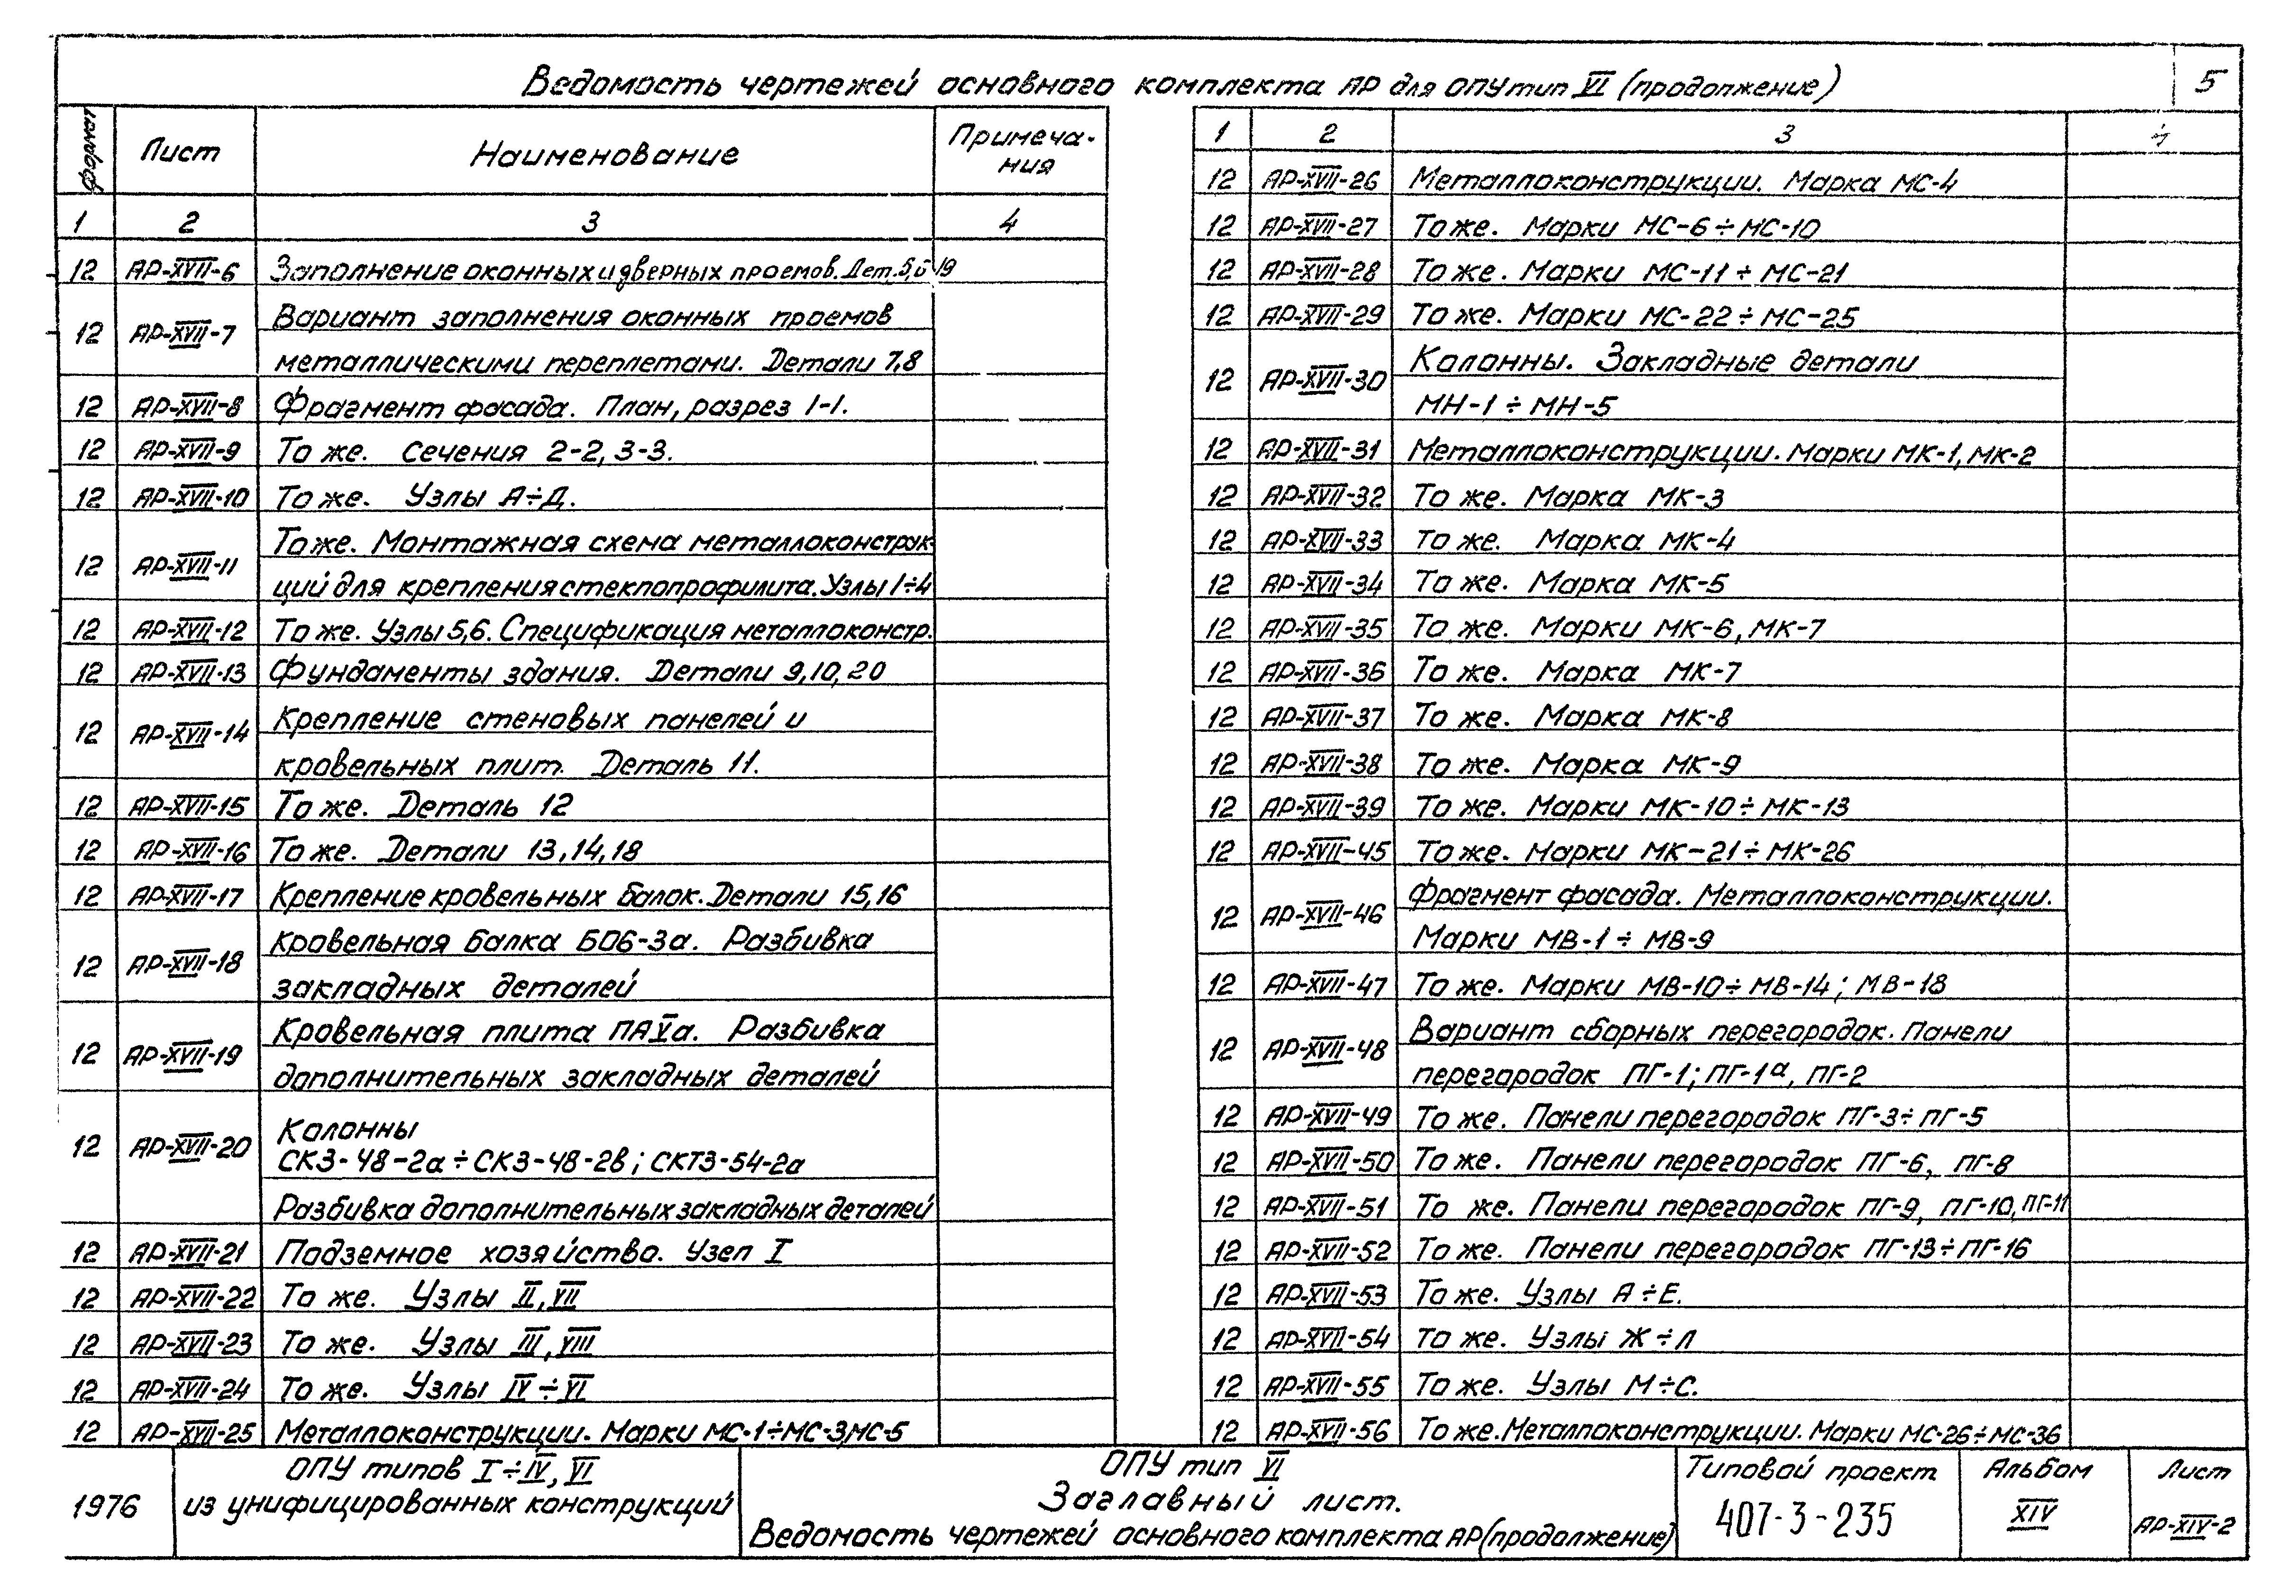 Ведомость чертежей основного комплекта АР для ОПУ тип VI (продолжение)
5
формат Лист Наименование Примеча-
ния
1 2 3 4
12 АР-XVII-6 Заполнение оконных и дверных проемов. Дет. 5,6 19
12 АР-XVII-7 Вариант заполнения оконных проемов
металлическими переплетами. Детали 7,8
12 АР-XVII-8 Фрагмент фасада. План, разрез 1-1.
12 АР-XVII-9 То же. Сечения 2-2, 3-3.
12 АР-XVII-10 То же. Узлы А÷Д.
12 АР-XVII-11 То же. Монтажная схема металлоконструк-
ций для крепления стеклопрофилита. Узлы 1÷4
12 АР-XVII-12 То же. Узлы 5,6. Спецификация металлоконстр.
12 АР-XVII-13 Фундаменты здания. Детали 9,10,20
12 АР-XVII-14 Крепление стеновых панелей и
кровельных плит. Деталь 11.
12 АР-XVII-15 То же. Деталь 12
12 АР-XVII-16 То же. Детали 13,14,18
12 АР-XVII-17 Крепление кровельных балок. Детали 15,16
12 АР-XVII-18 Кровельная балка БО6-3а. Разбивка
закладных деталей
12 АР-XVII-19 Кровельная плита ПАVа. Разбивка
дополнительных закладных деталей
12 АР-XVII-20 Колонны
СК3-48-2а÷СК3-48-2в; СКТ3-54-2а
Разбивка дополнительных закладных деталей
12 АР-XVII-21 Подземное хозяйство. Узел I
12 АР-XVII-22 То же. Узлы II, VII
12 АР-XVII-23 То же. Узлы III, VIII
12 АР-XVII-24 То же. Узлы IV÷VI
12 АР-XVII-25 Металлоконструкции. Марки МС-1÷МС-3, МС-5
1 2 3 4
12 АР-XVII-26 Металлоконструкции. Марка МС-4
12 АР-XVII-27 То же. Марки МС-6÷МС-10
12 АР-XVII-28 То же. Марки МС-11÷МС-21
12 АР-XVII-29 То же. Марки МС-22÷МС-25
12 АР-XVII-30 Колонны. Закладные детали
МН-1÷МН-5
12 АР-XVII-31 Металлоконструкции. Марки МК-1, МК-2
12 АР-XVII-32 То же. Марка МК-3
12 АР-XVII-33 То же. Марка МК-4
12 АР-XVII-34 То же. Марка МК-5
12 АР-XVII-35 То же. Марки МК-6, МК-7
12 АР-XVII-36 То же. Марка МК-7
12 АР-XVII-37 То же. Марка МК-8
12 АР-XVII-38 То же. Марка МК-9
12 АР-XVII-39 То же. Марки МК-10÷МК-13
12 АР-XVII-45 То же. Марки МК-21÷МК-26
12 АР-XVII-46 Фрагмент фасада. Металлоконструкции.
Марки МВ-1÷МВ-9
12 АР-XVII-47 То же. Марки МВ-10÷МВ-14; МВ-18
12 АР-XVII-48 Вариант сборных перегородок. Панели
перегородок ПГ-1; ПГ-1а, ПГ-2
12 АР-XVII-49 То же. Панели перегородок ПГ-3÷ПГ-5
12 АР-XVII-50 То же. Панели перегородок ПГ-6, ПГ-8
12 АР-XVII-51 То же. Панели перегородок ПГ-9, ПГ-10, ПГ-11
12 АР-XVII-52 То же. Панели перегородок ПГ-13÷ПГ-16
12 АР-XVII-53 То же. Узлы А÷Е.
12 АР-XVII-54 То же. Узлы Ж÷Л
12 АР-XVII-55 То же. Узлы М÷С.
12 АР-XVII-56 То же. Металлоконструкции. Марки МС-26÷МС-36
1976
ОПУ типов I÷IV, VI
из унифицированных конструкций
ОПУ тип VI
Заглавный лист.
Ведомость чертежей основного комплекта АР (продолжение)
Типовой проект
407-3-235
Альбом
XIV
Лист
АР-XIV-2